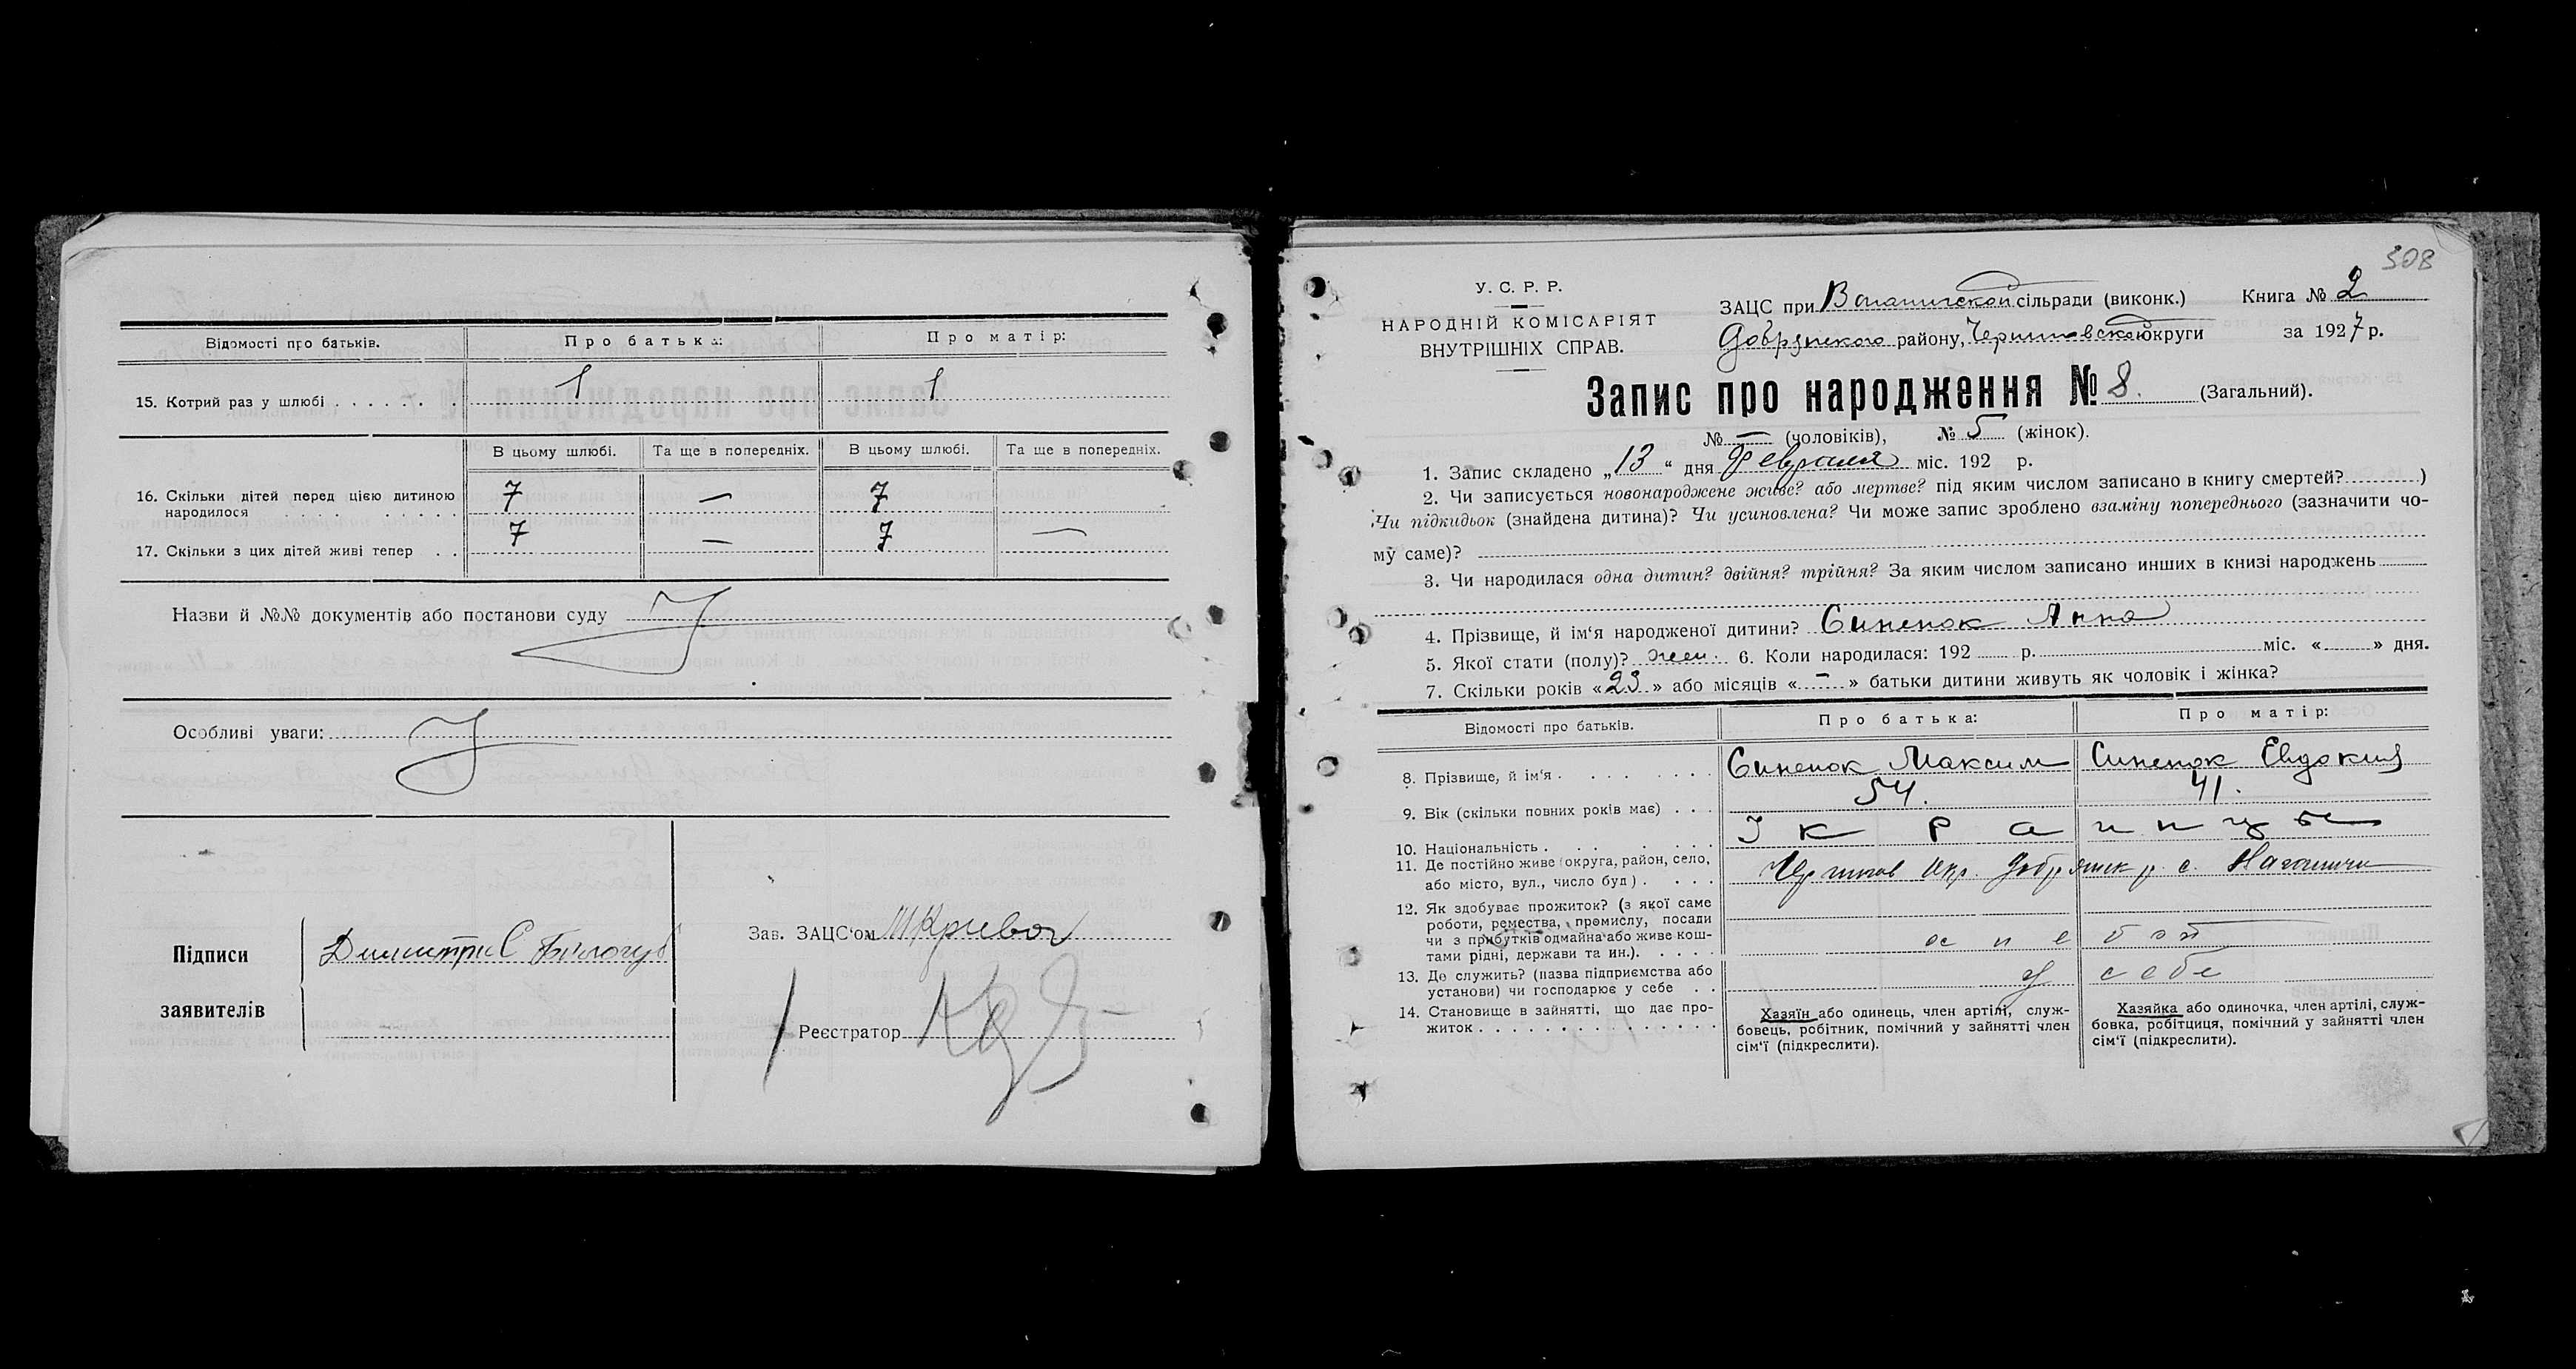 Відомості про батьків. Про батька: Про матір:
15. Котрий раз у шлюбі . . . . . . . 1 1
В цьому шлюбі. Та ще в попередніх. В цьому шлюбі. Та ще в попередніх.
16. Скільки дітей перед цією дитиною 7 — 7
народилося
17. Скільки з цих дітей живі тепер . . 7 — 7 —
Назви й №№ документів або постанови суду
Особливі уваги:
Підписи
заявителів
Зав. ЗАЦС'ом
Реєстратор
308
У. С. Р. Р.
НАРОДНІЙ КОМІСАРІЯТ
ВНУТРІШНІХ СПРАВ.
ЗАЦС при сільради (виконк.) Книга № 2
району, округи за 1927 р.
Запис про народження № 8. (Загальний).
№ — (чоловіків), № 5 (жінок).
1. Запис складено „13“ дня Февраля міс. 192 р.
2. Чи записується новонароджене живе? або мертве? під яким числом записано в книгу смертей? )
Чи підкидьок (знайдена дитина)? Чи усиновлена? Чи може запис зроблено взаміну попереднього (зазначити чо-
му саме)?
3. Чи народилася одна дитин? двійня? трійня? За яким числом записано инших в книзі народжень
4. Прізвище, й ім'я народженої дитини? Синенок Анна
5. Якої стати (полу)? жен. 6. Коли народилася: 192 р. міс. « » дня.
7. Скільки років «23» або місяців «—» батьки дитини живуть як чоловік і жінка?
Відомості про батьків. Про батька: Про матір:
8. Прізвище, й ім'я . . . . . . . Синенок Максим Синенок Евдокия
9. Вік (скільки повних років має) . . . 54. 41.
10. Національність . . . . . . .
11. Де постійно живе (округа, район, село,
або місто, вул., число буд) . . . .
12. Як здобуває прожиток? (з якої саме
роботи, ремества, промислу, посади
чи з прибутків одмайна або живе кош-
тами рідні, держави та ин.). . . . .
13. Де служить? (назва підприємства або у себе
установи) чи господарює у себе . .
14. Становище в зайнятті, що дає про-
житок . . . . . . . . . . . . . . .
Хазяїн або одинець, член артілі, служ-
бовець, робітник, помічний у зайнятті член
сім'ї (підкреслити).
Хазяйка або одиночка, член артілі, служ-
бовка, робітциця, помічний у зайнятті член
сім'ї (підкреслити).